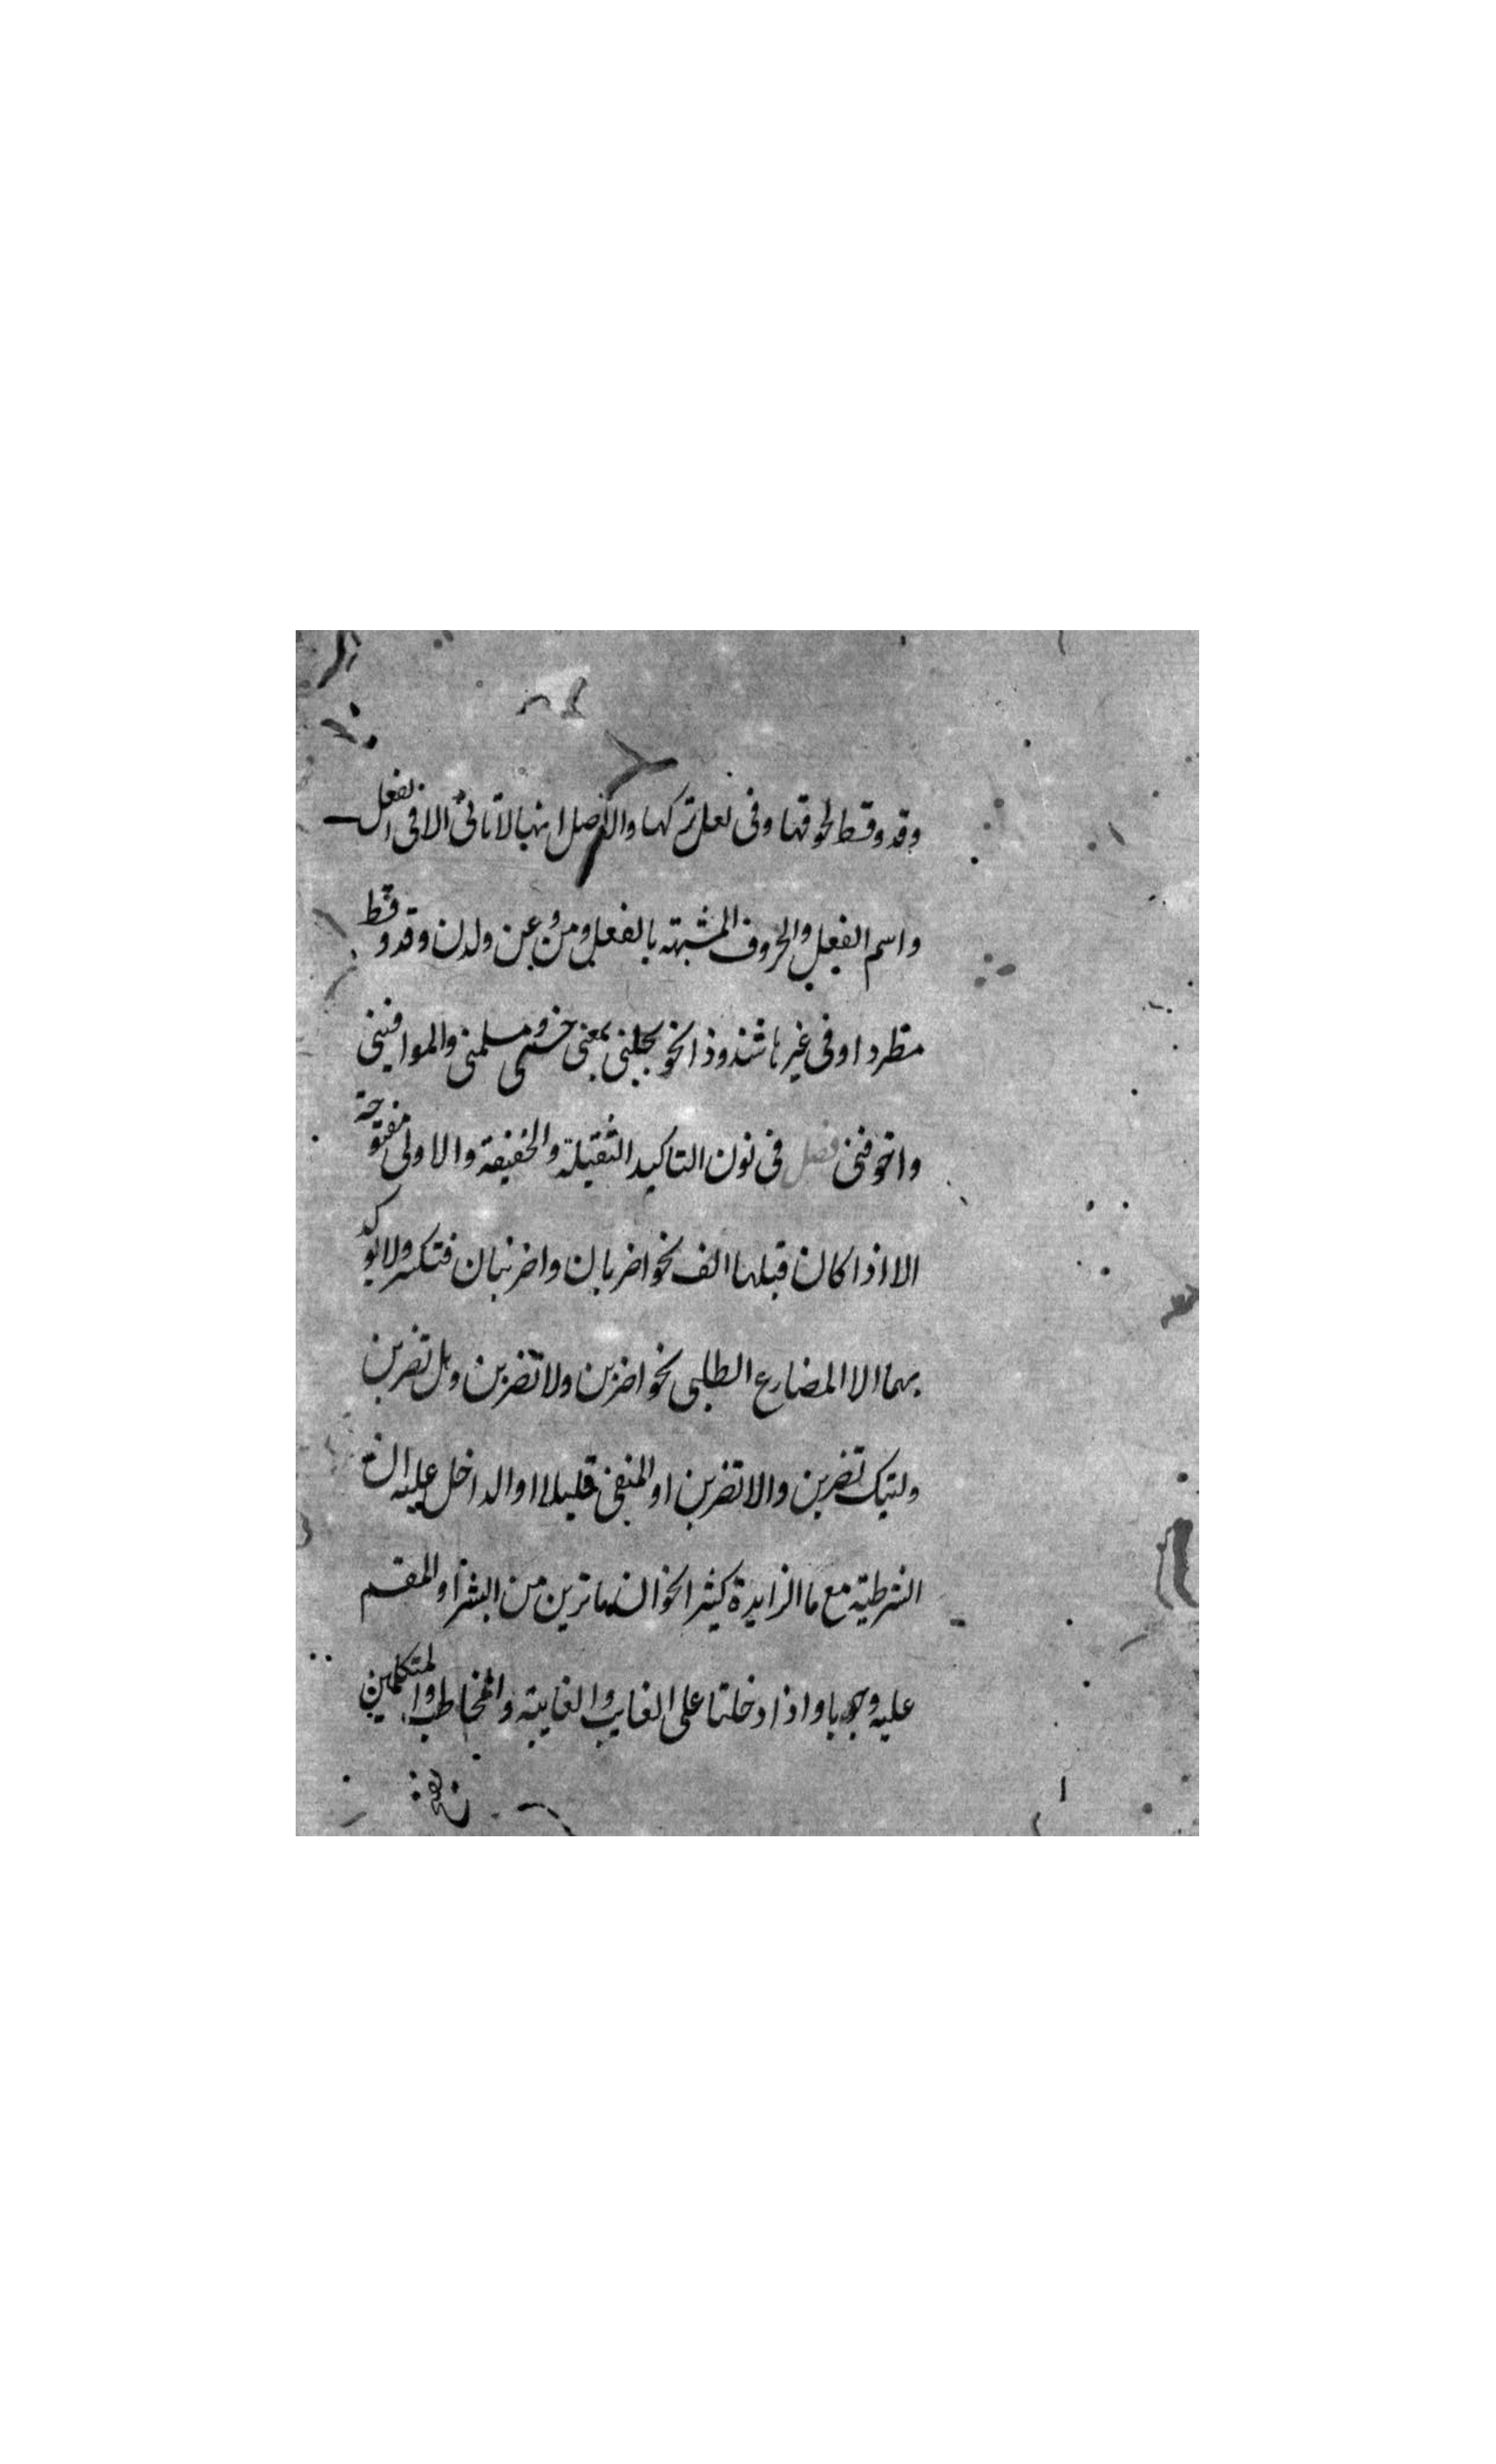 وقد وقط لحوقها وفى لعل تركها والاصل انها لا تاتى الا فى الفعل
واسم الفعل والحروف المشبهة بالفعل ومن وعن ولدن وقد وقط
مطردا وفى غيرها شذوذا نحو بجلنى بمعنى حسبى ومسلمنى والموافينى
واخوفنى فصل فى نون التاكيد الثقيلة والخفيفة والاولى مفتوحة
الا اذا كان قبلها الف نحو اضربان واضربنان فتكسر ولا يوكد
بهما الا المضارع الطلبى نحو اضربن ولا تضربن وهل تضربن
وليتك تضربن والا تضربن او المنفى قليلا او الداخل عليه ان
الشرطية مع ما الزايدة كثيرا نحو ان ما ترين من البشر او المقسم
عليه وجوبا واذا دخلتا على الغايب والغايبة والمخاطب والمتكلمين